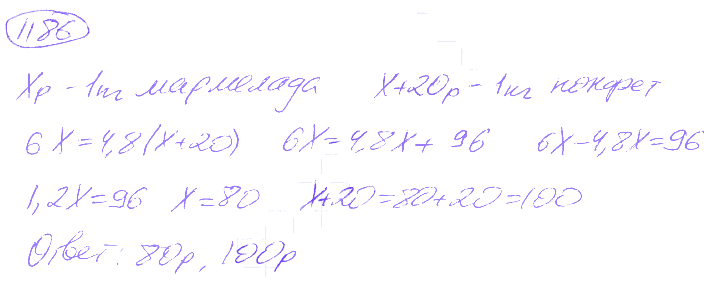 1186
Xр - 1кг мармелада X+20р - 1кг конфет
6X=4,8(X+20) 6X=4,8X+96 6X-4,8X=96
1,2X=96 X=80 X+20=80+20=100
Ответ: 80р, 100р